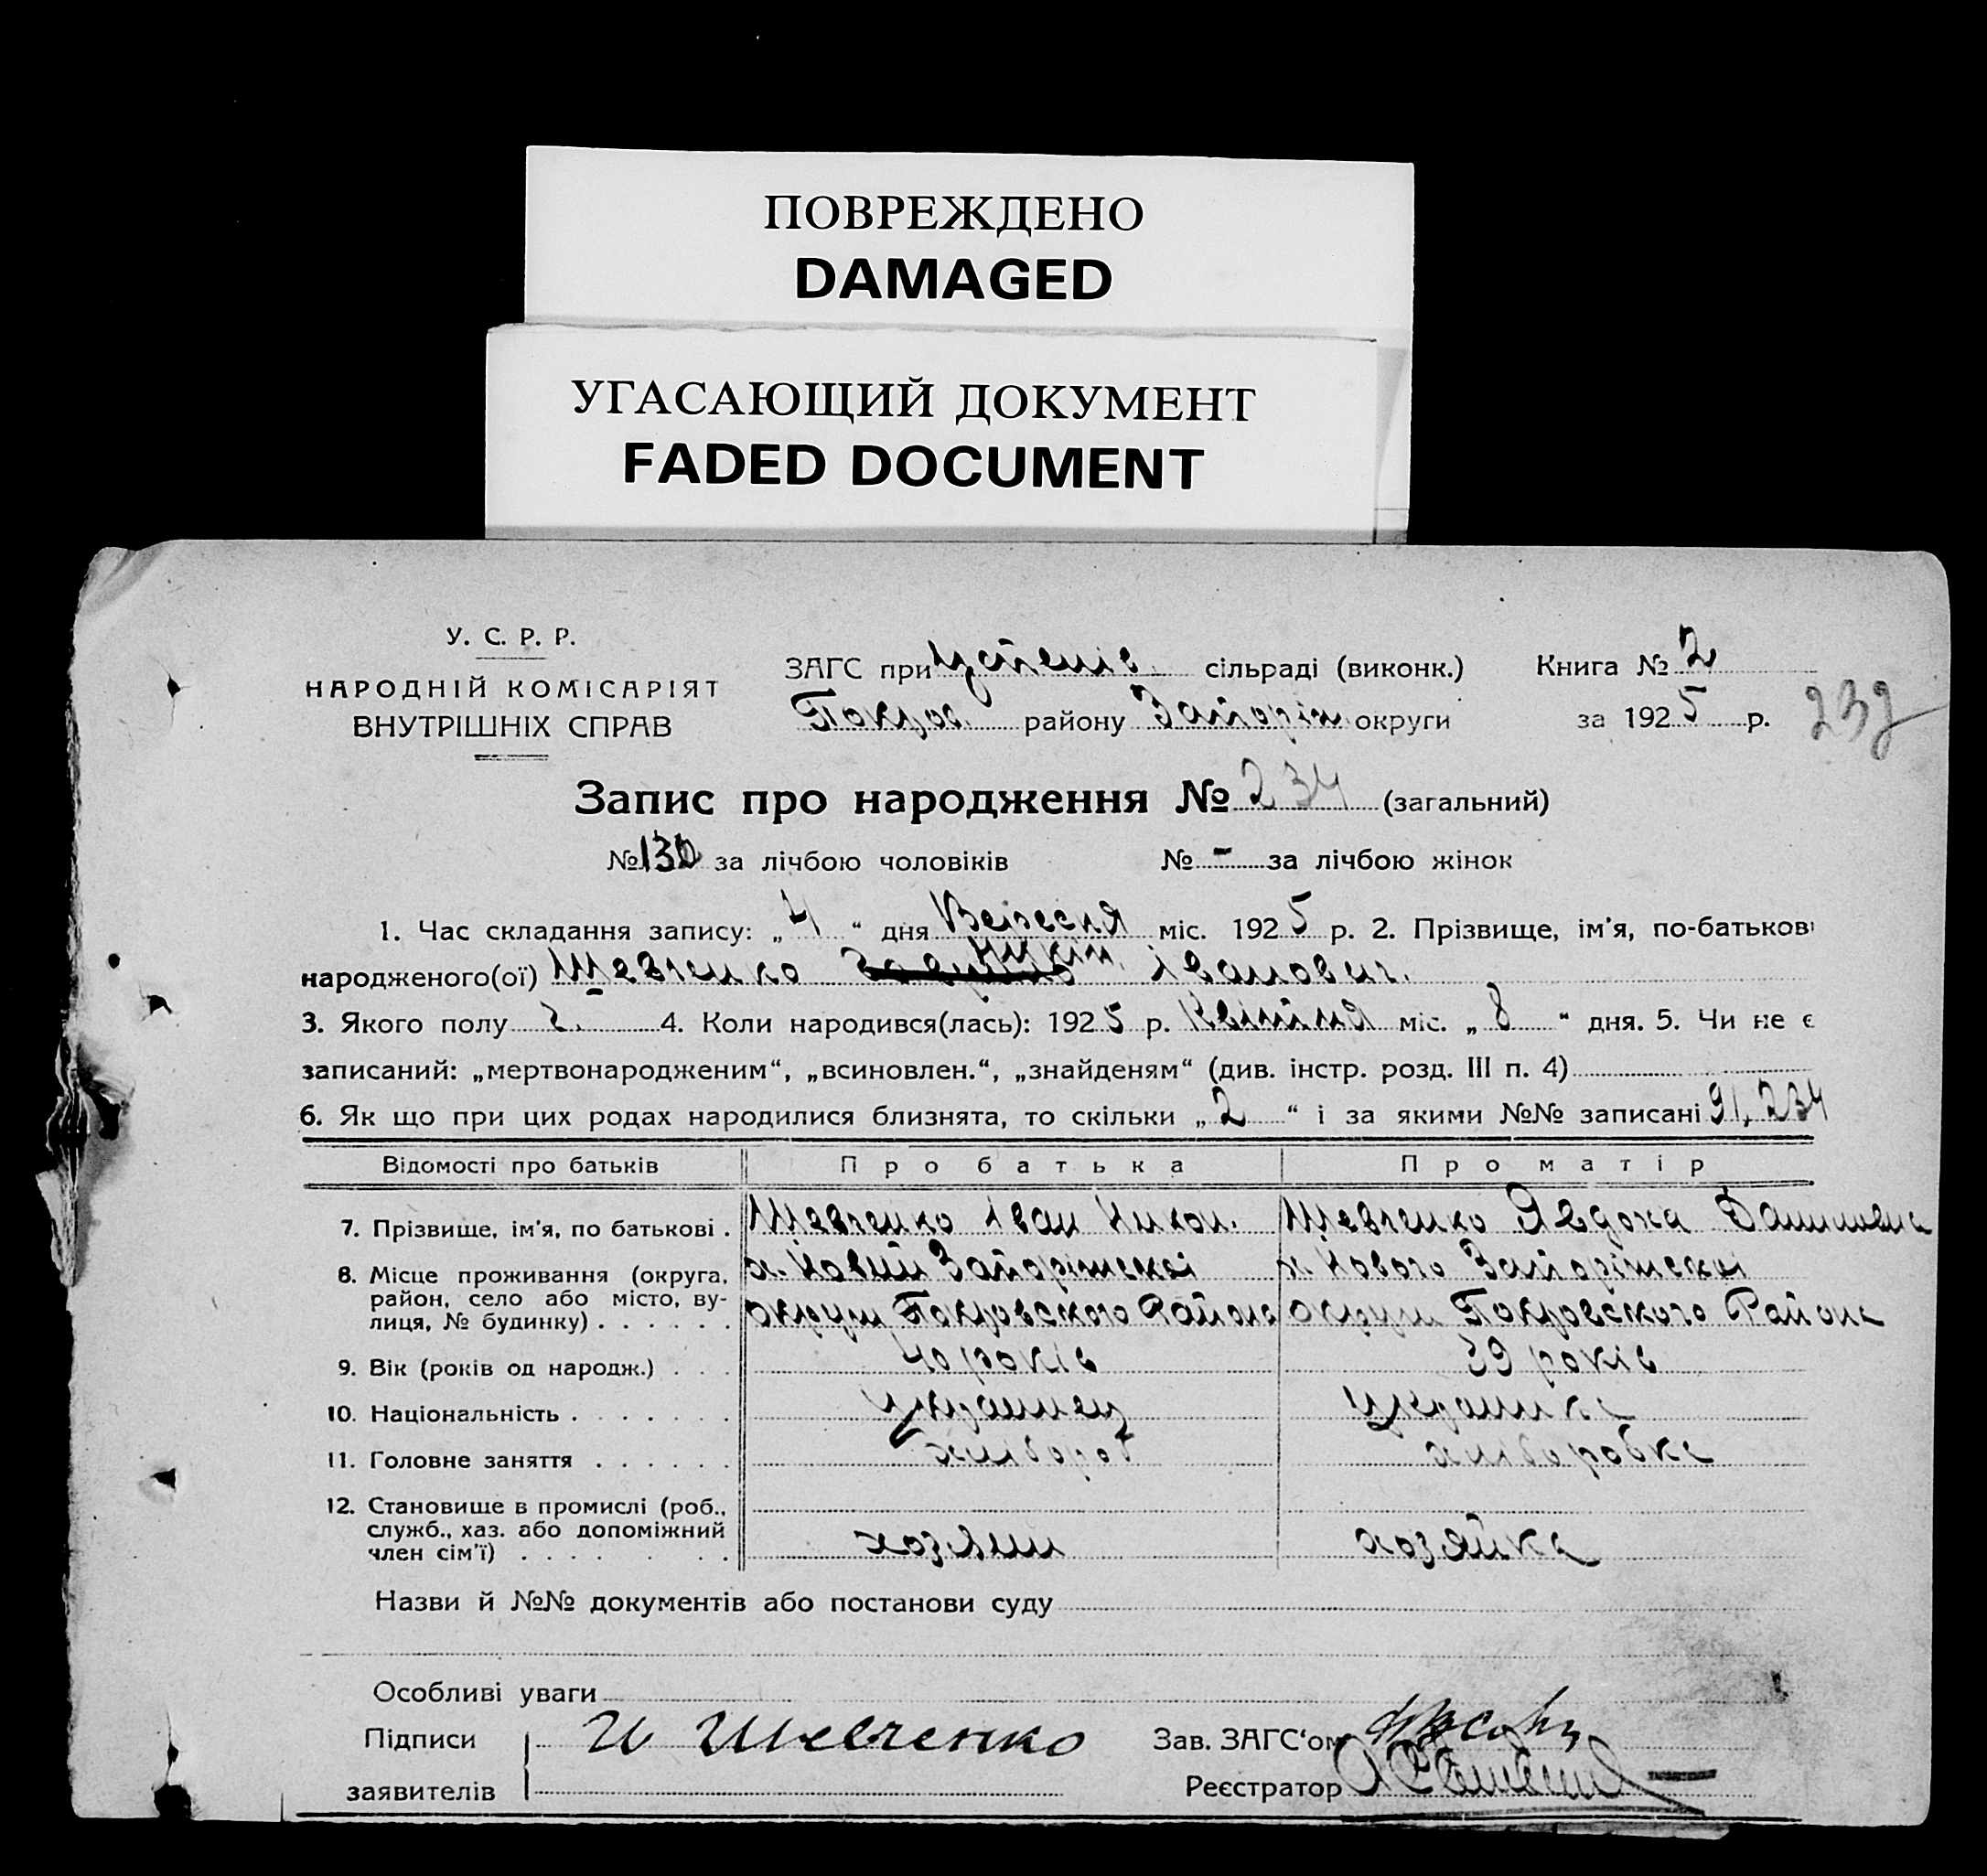 ПОВРЕЖДЕНО
DAMAGED
УГАСАЮЩИЙ ДОКУМЕНТ
FADED DOCUMENT
У. С. Р. Р.
НАРОДНІЙ КОМІСАРІЯТ
ВНУТРІШНІХ СПРАВ
ЗАГС при Успенів. сільраді (виконк.) Книга № 2
Покров. району Запоріж. округи за 1925 р.
232
Запис про народження № 234 (загальний)
№ 130 за лічбою чоловіків № - за лічбою жінок
1. Час складання запису: „4“ дня Вересня міс. 1925 р. 2. Прізвище, ім'я, по-батькові
народженого(ої) Шевченко Іванович.
3. Якого полу ч. 4. Коли народився(лась): 1925 р. Квітня міс. „8“ дня. 5. Чи не є
записаний: „мертвонародженим“, „всиновлен.“, „знайденям“ (див. інстр. розд. III п. 4)
6. Як що при цих родах народилися близнята, то скільки „2“ і за якими №№ записані 91, 234
Відомості про батьків Про батька Про матір
7. Прізвище, ім'я, по батькові . Шевченко Іван Никол. Шевченко Явдоха Данилов­на
8. Місце проживання (округа, х. Новий Запоріжскої х. Нового Запоріжскої
район, село або місто, ву-
лиця, № будинку) . . . . . . округи Покровского Района округи Покровского Района
9. Вік (років од народж.) . . . 40 років 39 років
10. Національність . . . . . . . украинец украинка
11. Головне заняття . . . . . . хлібороб хлібо­робка
12. Становище в промислі (роб.,
служб., хаз. або допоміжний
член сім'ї) . . . . . . . хозяин хозяйка
Назви й №№ документів або постанови суду
Особливі уваги
Підписи И Шевченко Зав. ЗАГС‘ом
заявителів Реєстратор